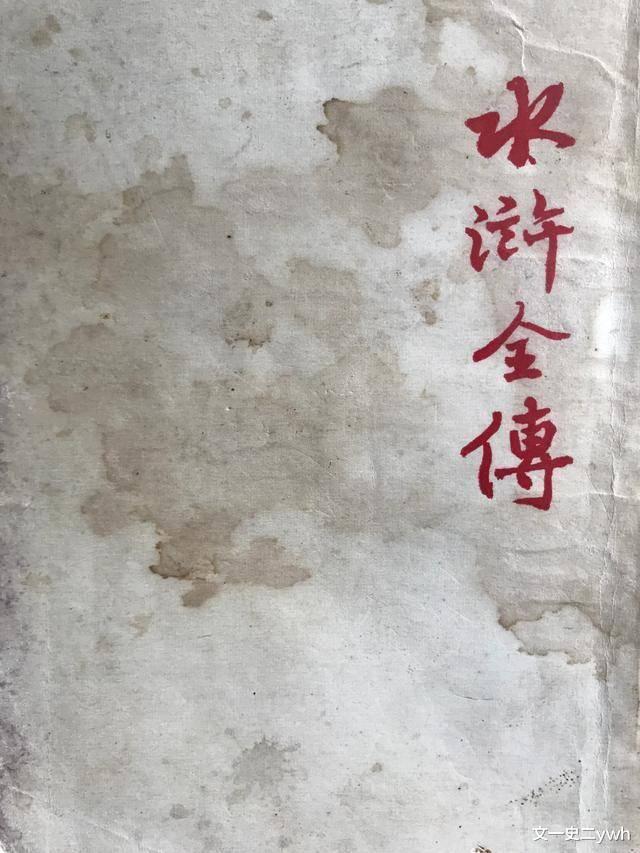 水滸全傳
文一史二ywh